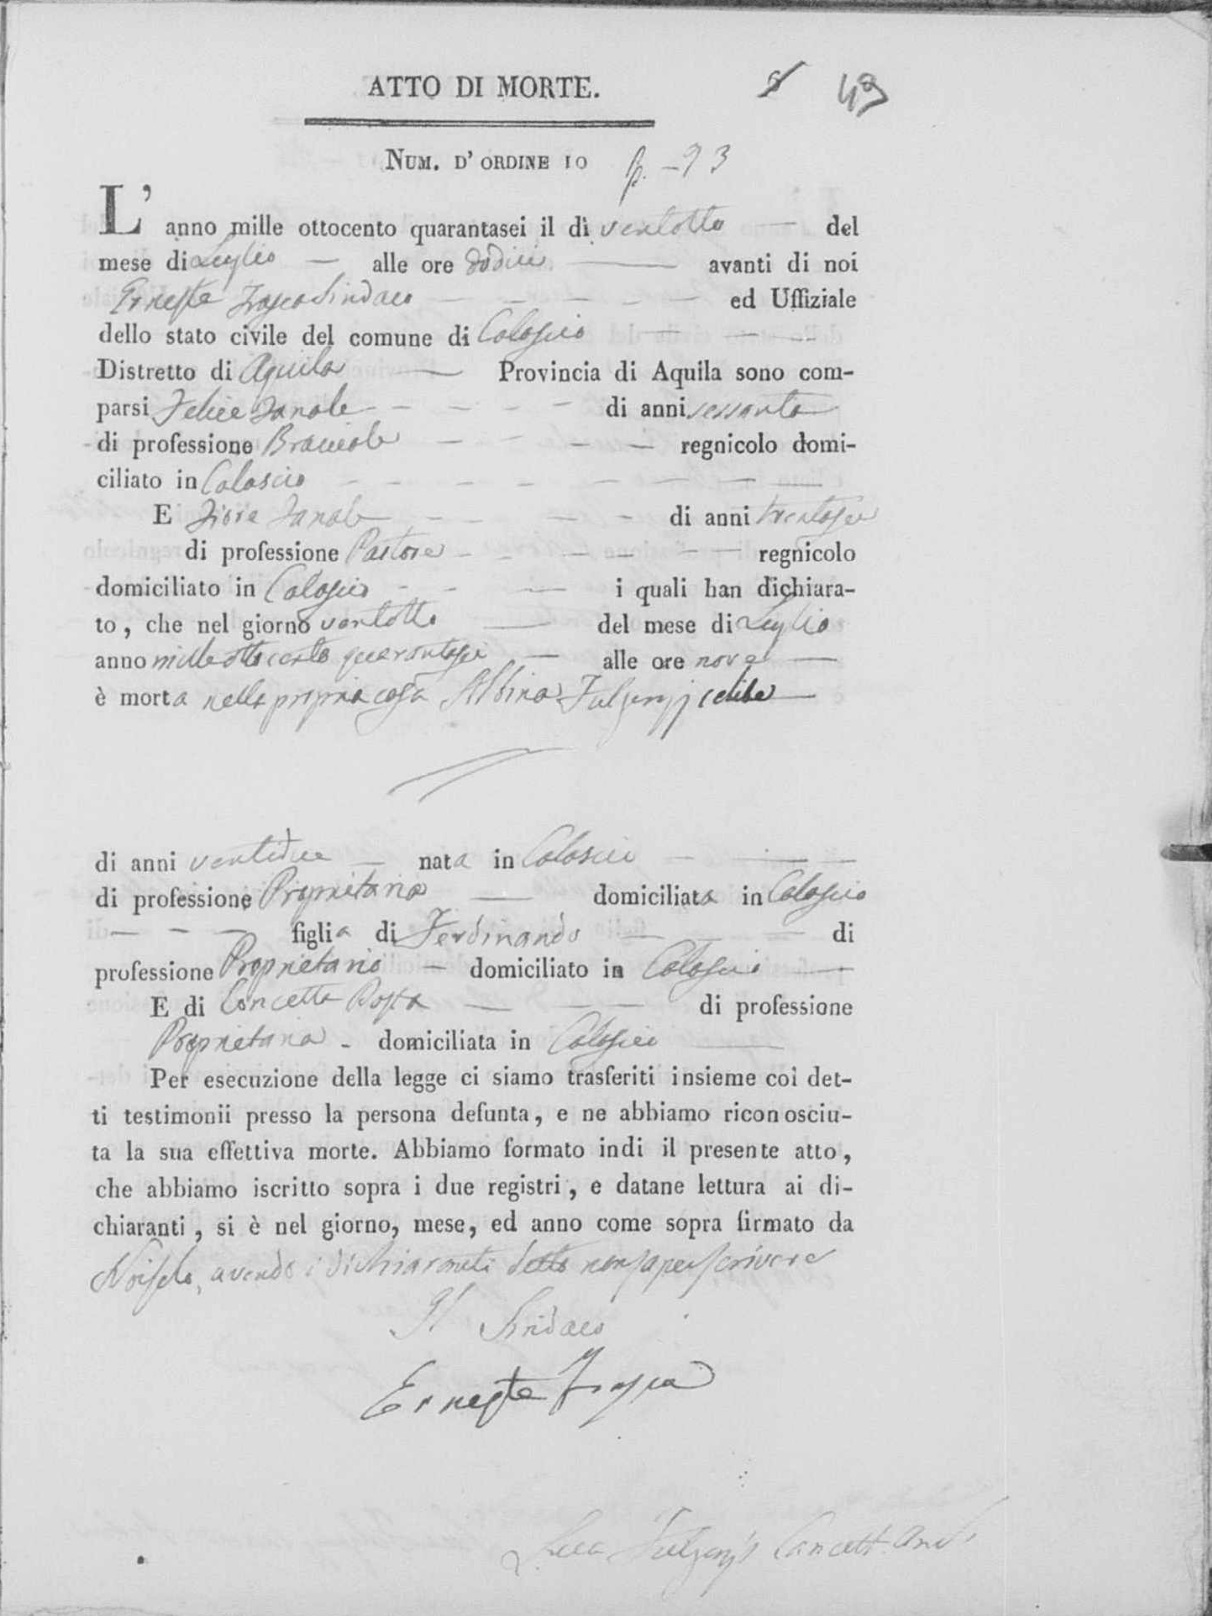 ATTO DI MORTE.
49
NUM. D' ORDINE 10
L' anno mille ottocento quarantasei il dì ventotto del
mese di Luglio alle ore dodici avanti di noi
Erneste Frasca Sindaco ed Uffiziale
dello stato civile del comune di Calascio
Distretto di Aquila Provincia di Aquila sono com-
parsi Felice Fanale di anni sessanta
di professione Bracciale regnicolo domi-
ciliato in Calascio
E Fiore Fanale di anni trentasei
di professione Pastore regnicolo
domiciliato in Calascio i quali han dichiara-
to, che nel giorno ventotto del mese di Luglio
anno mille ottocento quarantasei alle ore nove
è morta nella propria casa Albina Fulgenzj celibe
di anni ventidue nata in Calascio
di professione Proprietaria domiciliata in Calascio
figlia di Ferdinando di
professione Proprietario domiciliato in Calascio
E di Concetta di professione
Proprietaria domiciliata in Calascio
Per esecuzione della legge ci siamo trasferiti insieme coi det-
ti testimonii presso la persona defunta, e ne abbiamo riconosciu-
ta la sua effettiva morte. Abbiamo formato indi il presente atto,
che abbiamo iscritto sopra i due registri, e datane lettura ai di-
chiaranti, si è nel giorno, mese, ed anno come sopra firmato da
Noi solo, avendo i dichiaranti detto non saper scrivere
Il Sindaco
Erneste Frasca
Luca Fulgenzj